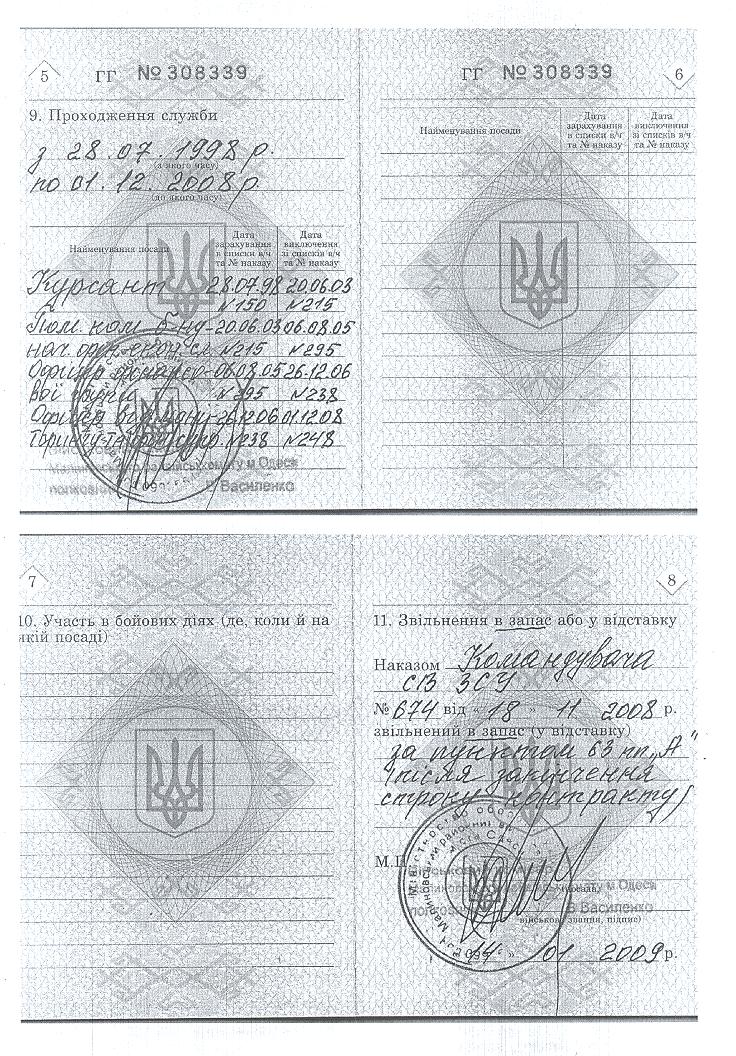 5
ГГ №308339
9. Проходження служби
з 28.07.1998 р.
(з якого часу)
по 01.12.2008р.
(до якого часу)
Найменування посади
Дата зарахування в списки в/ч та № наказу
Дата виключення зі списків в/ч та № наказу
Курсант 28.07.98 20.06.03
№150 №215
Пом. ком. 20.06.03 06.08.05
№215 №295
Офіцер 06.08.05 26.12.06
№295 №238
Офіцер 26.12.06 01.12.08
№238 №248
м Одеси
В Василенко
ГГ №308339
6
Найменування посади
Дата зарахування в списки в/ч та № наказу
Дата виключення зі списків в/ч та № наказу
7
10. Участь в бойових діях (де, коли й на
якій посаді)
8
11. Звільнення в запас або у відставку
Наказом Командувача
СВ ЗСУ
№ 674 від « 18 » 11 2008 р.
звільнений в запас (у відставку)
за пунктом 63 пп. „А"
(після закінчення
строку контракту)
М.П.
м Одеси
В Василенко
військове звання, підпис)
14 » 01 2009 р.